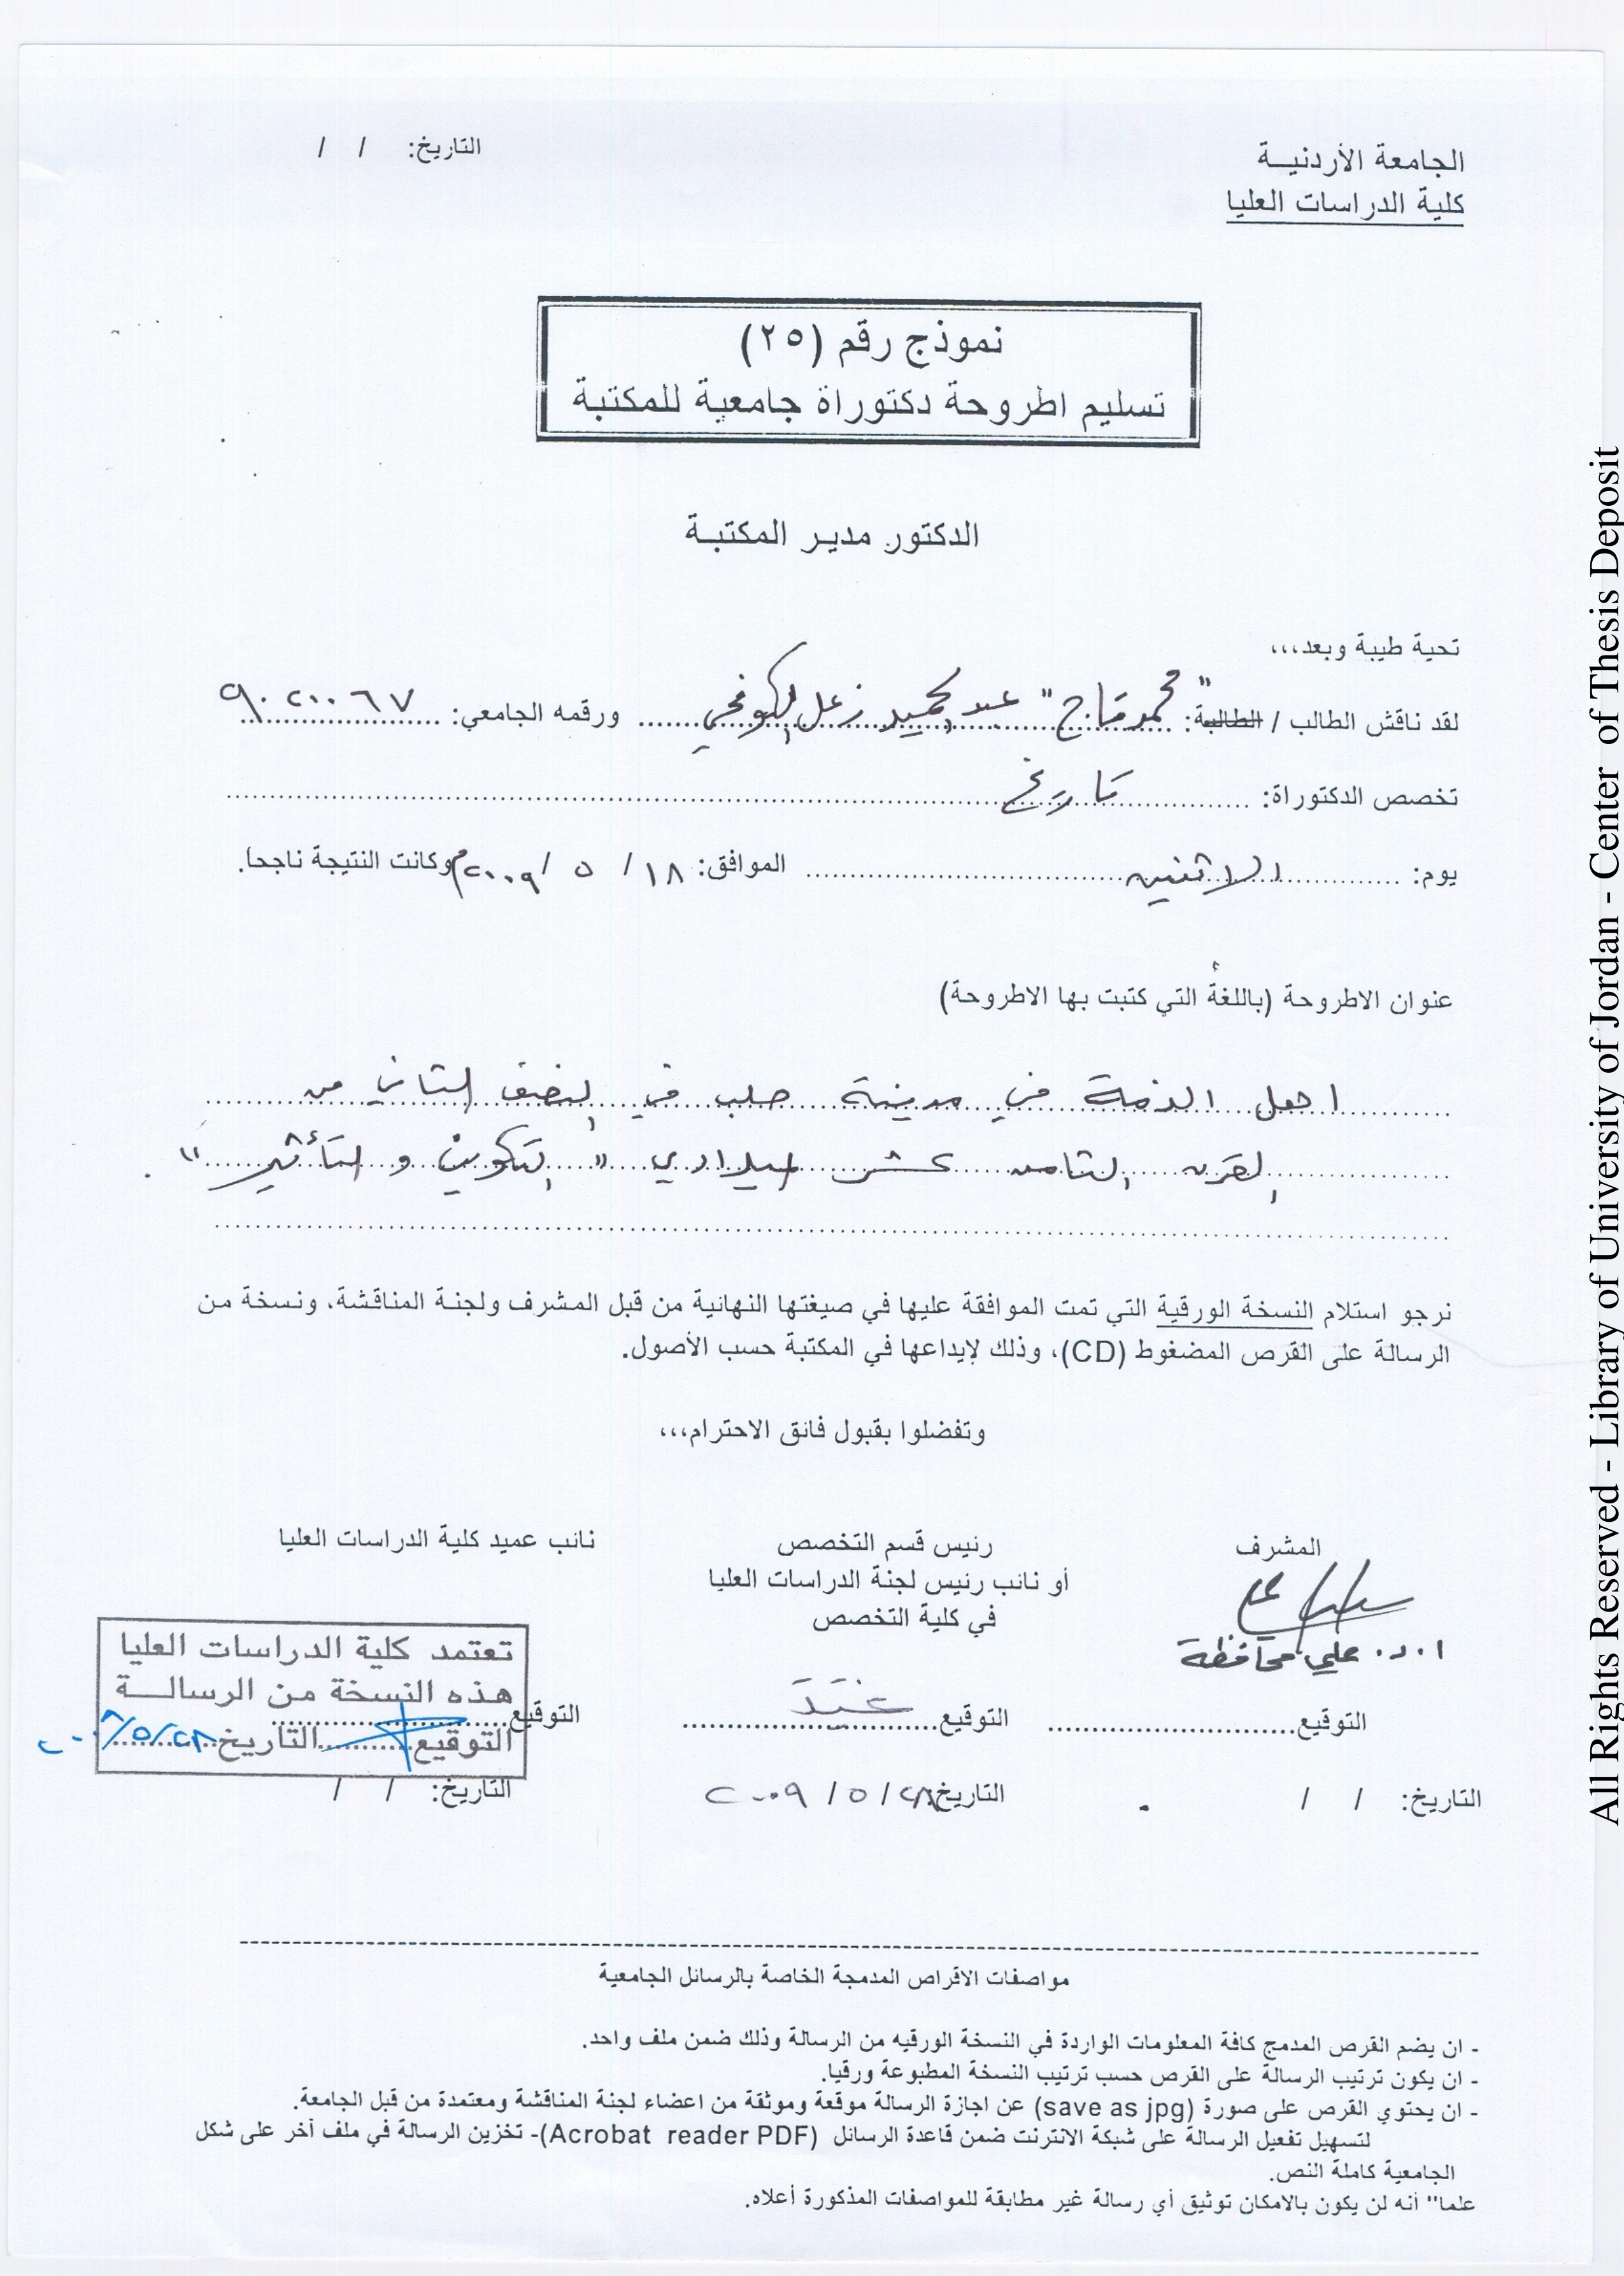 الجامعة الأردنيـــة
كلية الدراسات العليا
التاريخ: / /
نموذج رقم (٢٥)
تسليم اطروحة دكتوراة جامعية للمكتبة
الدكتور مدير المكتبة
تحية طيبة وبعد،،،
لقد ناقش الطالب / الطالبة: "محمد متاح" عبد الحميد زعل الكوفحي ورقمه الجامعي: ٩٠٢٠٠٦٧
تخصص الدكتوراة: تاريخ
يوم: الاثنين الموافق: ١٨ / ٥ / ٢٠٠٩م وكانت النتيجة ناجحا.
عنوان الاطروحة (باللغة التي كتبت بها الاطروحة)
اهل الذمة في مدينة حلب في النصف الثاني من
القرن الثامن عشر الميلادي "التكوين والتأثير"
نرجو استلام النسخة الورقية التي تمت الموافقة عليها في صيغتها النهائية من قبل المشرف ولجنة المناقشة، ونسخة من
الرسالة على القرص المضغوط (CD)، وذلك لإيداعها في المكتبة حسب الأصول.
وتفضلوا بقبول فائق الاحترام،،،
المشرف
أ.د. علي محافظة
التوقيع
التاريخ: / /
رئيس قسم التخصص
أو نائب رئيس لجنة الدراسات العليا
في كلية التخصص
التوقيع
التاريخ ٢٨ / ٥ / ٢٠٠٩
نائب عميد كلية الدراسات العليا
تعتمد كلية الدراسات العليا
هذه النسخة من الرسالـــة
التوقيع
التوقيع التاريخ ٢٨/٥/٢٠٠٩
التاريخ: / /
مواصفات الاقراص المدمجة الخاصة بالرسائل الجامعية
- ان يضم القرص المدمج كافة المعلومات الواردة في النسخة الورقيه من الرسالة وذلك ضمن ملف واحد.
- ان يكون ترتيب الرسالة على القرص حسب ترتيب النسخة المطبوعة ورقيا.
- ان يحتوي القرص على صورة (save as jpg) عن اجازة الرسالة موقعة وموثقة من اعضاء لجنة المناقشة ومعتمدة من قبل الجامعة.
لتسهيل تفعيل الرسالة على شبكة الانترنت ضمن قاعدة الرسائل (Acrobat reader PDF)- تخزين الرسالة في ملف آخر على شكل
الجامعية كاملة النص.
علما" أنه لن يكون بالامكان توثيق أي رسالة غير مطابقة للمواصفات المذكورة أعلاه.
All Rights Reserved - Library of University of Jordan - Center of Thesis Deposit